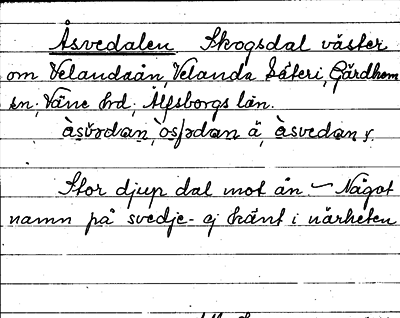 Åsvedalen Skogsdal väster
om Velandaån, Velanda Säteri, Gärdhem
sn. Väne hrd, Älfsborgs län.
Stor djup dal mot ån. — Något
namn på svedje- ej känt i närheten